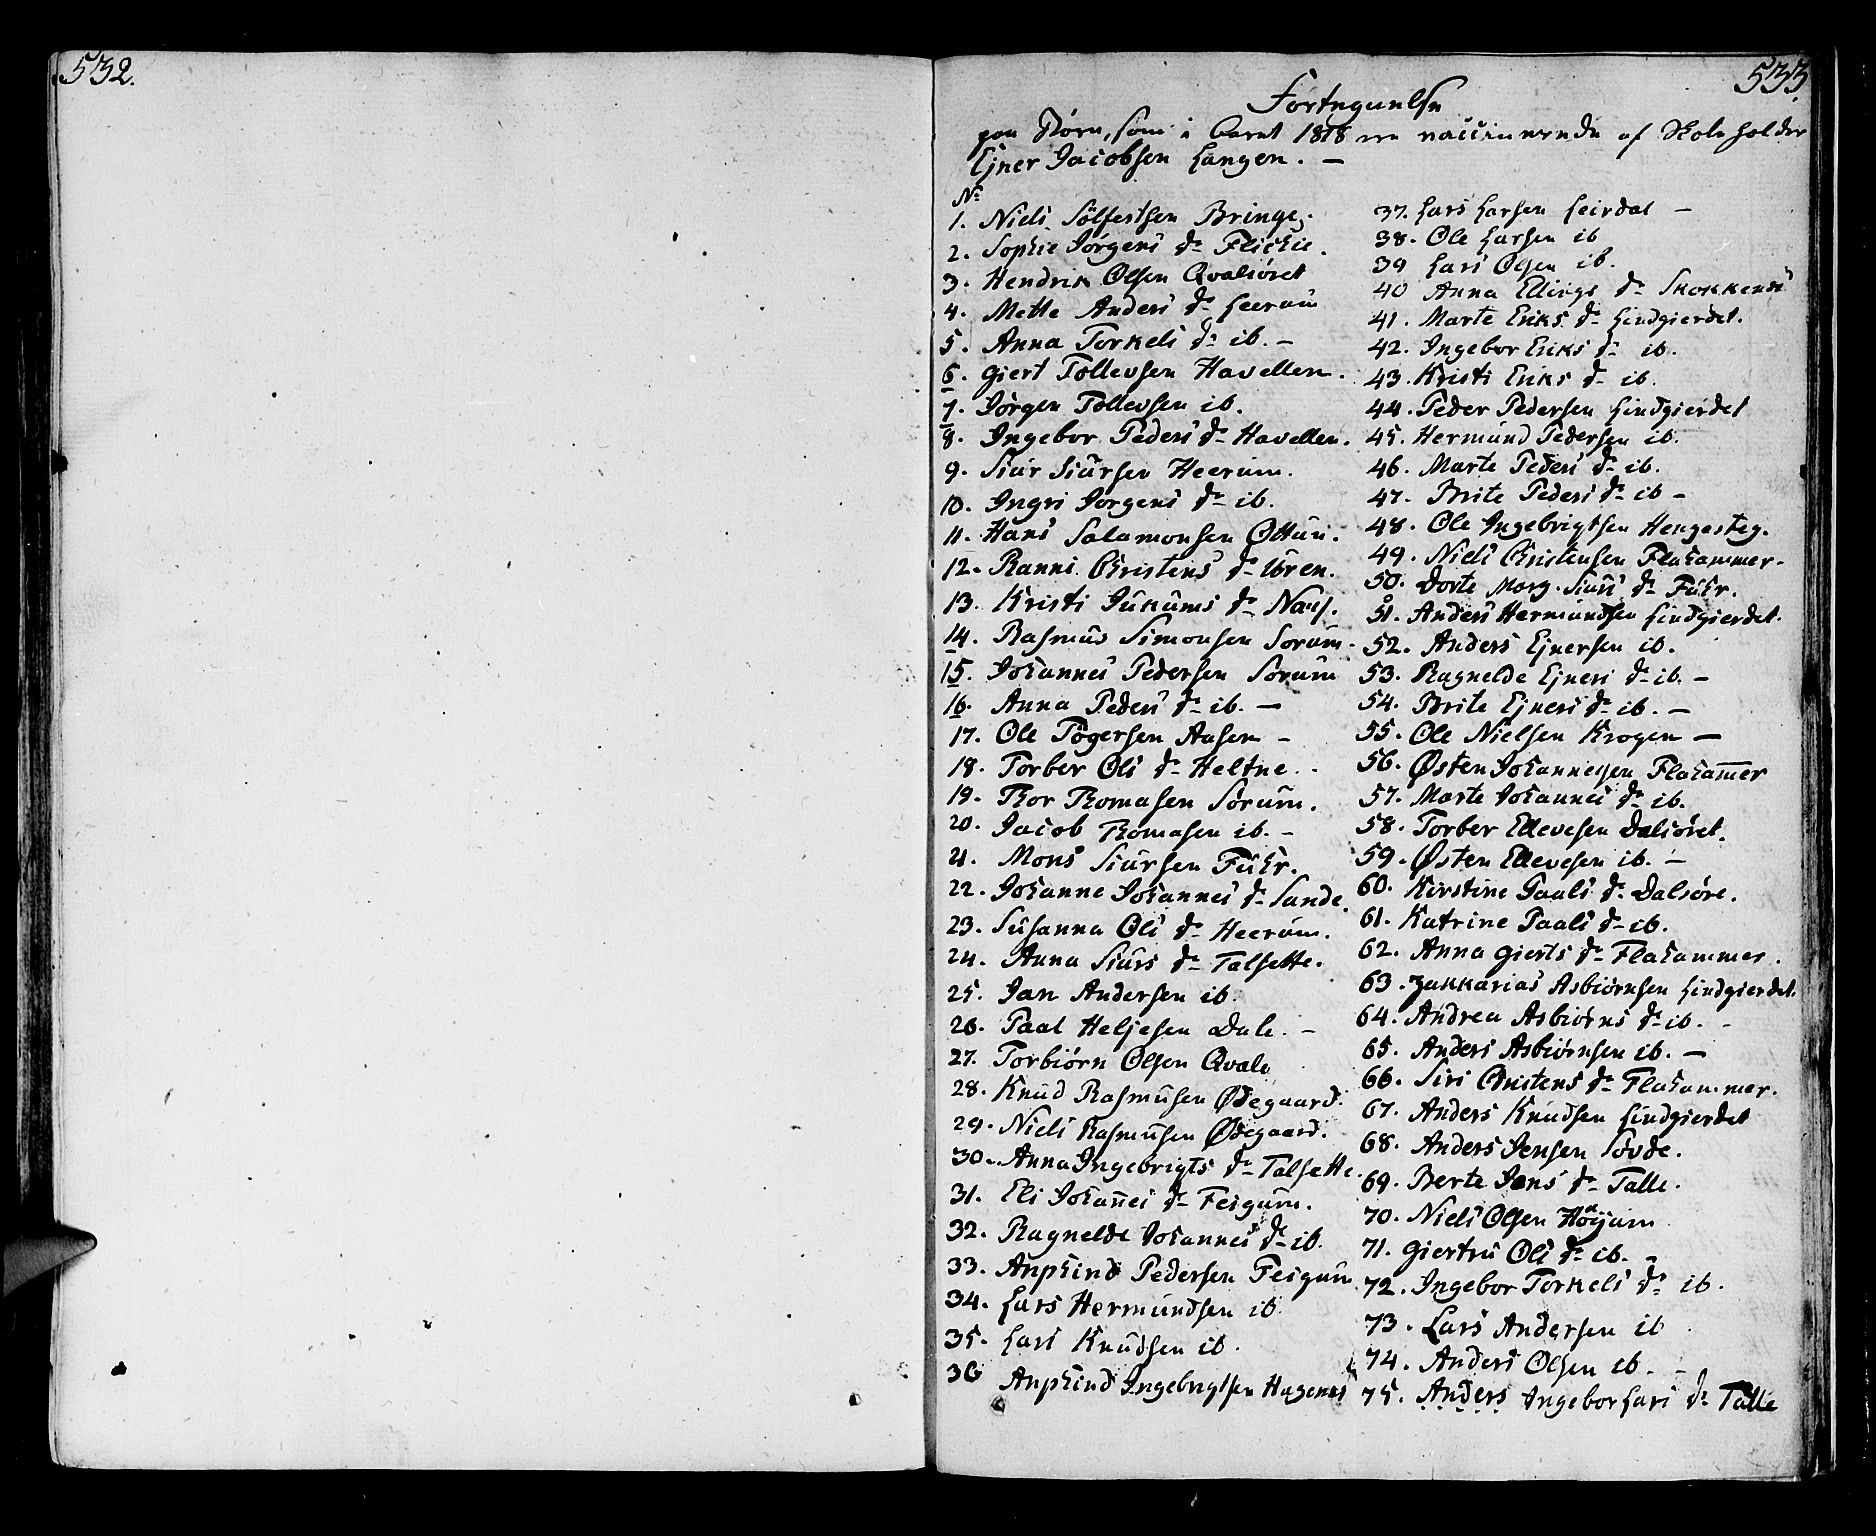 532.
533
Fortegnelse
paa Børn, som i Aaret 1818 ere vaccinerede af Skoleholder
Ejner Jacobsen Hangen. —
No
1. Niels Sölfestsen Bringe.
2. Sophie Jörgens Dr
3. Hendrik Olsen Qvalsöret
4. Mette Anders Dr Heerum
5. Anna Torkels Dr ib. —
6. Giert Tollevsen Havellen.
7. Jörgen Tollevsen ib.
8. Ingebor Peders Dr Havellen.
9. Siur Siursen Heerum.
10. Ingri Jörgens Dr ib.
11. Hans Salamonsen Ottum.
12. Ranni Christens Dr Uren.
13. Kristi Dr
14. Rasmus Simonsen Sorum.
15. Johannes Pedersen Sorum
16. Anna Peders Dr ib. —
17. Ole Tögersen Aasen —
18. Torber Ols Dr Heltne.
19. Thor Thomasen Sörum.
20. Jacob Thomasen ib. —
21. Mons Siursen Fuhr.
22. Johanne Johannes Dr Sande.
23. Susanna Ols Dr Heerum.
24. Anna Siurs Dr Talsette.
25. Jan Andersen ib.
26. Paal Heljesen Dale. —
27. Torbiörn Olsen Qvale
28. Knud Rasmusen Ødegaard.
29. Niels Rasmusen Ødegaard.
30. Anna Ingebrigts Dr Talsette.
31. Eli Johannes Dr Feigum.
32. Ragnelde Johannes Dr ib.
33. Amphind Pedersen Feigum
34. Lars Hermundsen ib
35. Lars Knudsen ib.
36 Amphind Ingebrigtsen Hugenes
37. Lars Larsen Leirdal —
38. Ole Larsen ib
39 Lars Olsen ib.
40 Anna Ellings Dr
41. Marte Eriks Dr Lindgierdet.
42. Ingebor Eriks Dr ib.
43. Kristi Eriks Dr ib.
44. Peder Pedersen Lindgierdet
45. Hermund Pedersen ib.
46. Marte Peders Dr ib.
47. Brite Peders Dr ib —
48. Ole Ingebrigtsen Hengesteg.
49. Niels Christensen Flahammer.
50. Dorte Marg. Siurs Dr Fuhr.
51. Anders Hermundsen Lindgierdet.
52. Anders Ejnersen ib.
53. Ragnelde Ejners Dr ib. —
54. Brite Ejners Dr ib. —
55. Ole Nielsen Krogen —
56. Østen Johannesen Flaham̅er
57. Marte Johannes Dr ib.
58. Torber Ellevesen Dalsöret.
59. Østen Ellevesen ib. —
60. Kirstine Paals Dr Dalsöre.
61. Katrine Paals Dr ib.
62. Anna Gierts Dr Flahammer.
63. Zakkarias Asbiörnsen Lindgierdet.
64. Andrea Asbiörns Dr ib. —
65. Anders Asbiörnsen ib. —
66. Siri Christens Dr Flahammer.
67. Anders Knudsen Lindgierdet
68. Anders Jensen Sövde.
69. Berte Jens Dr Talle.
70. Niels Olsen Höÿum
71. Giertru Ols Dr ib. —
72. Ingebor Torkels Dr ib.
73. Lars Andersen ib
74. Anders Olsen ib. —
75. Anders Ingebor Lars Dr Talle